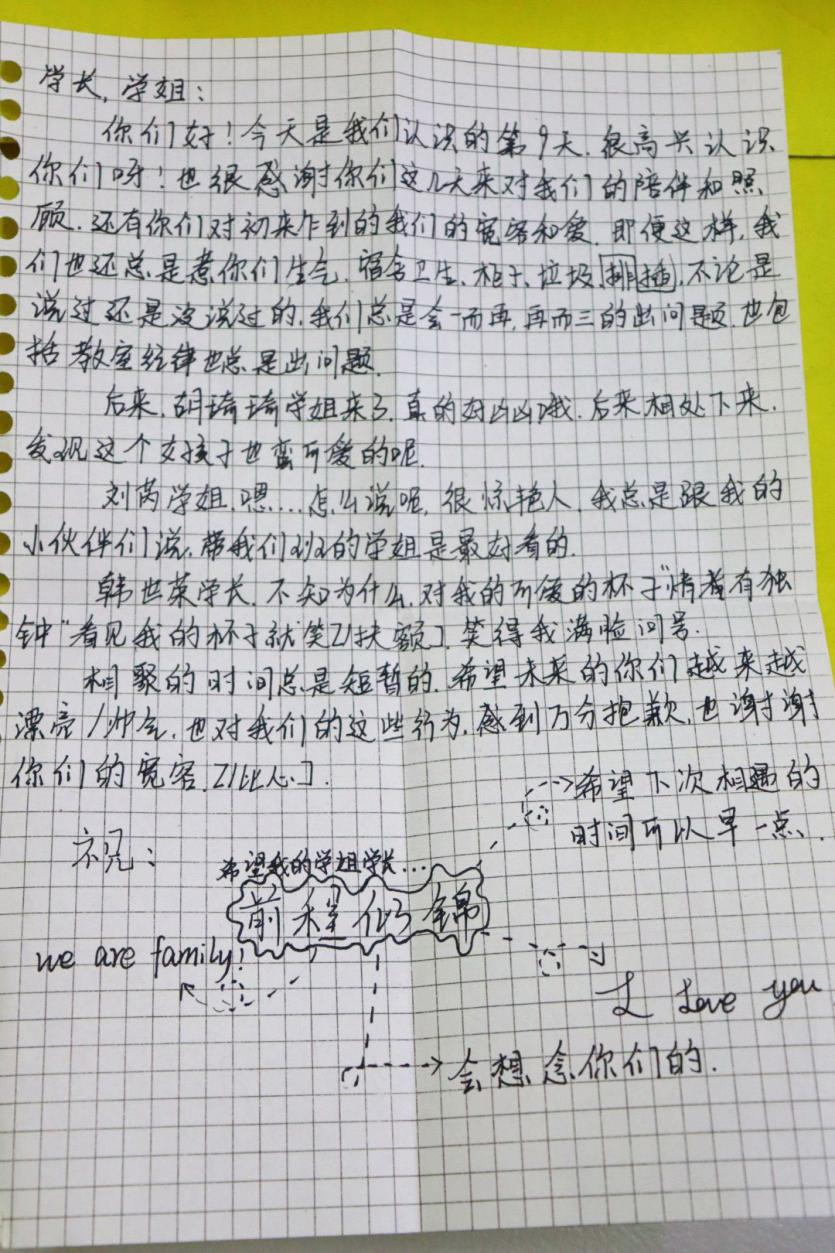 学长,学姐:
你们好!今天是我们认识的第9天.很高兴认识
你们呀!也很感谢你们这几天来对我们的陪伴和照
顾.还有你们对初来乍到的我们的宽容和爱.即便这样,我
们也还总是惹你们生气.宿舍卫生、柜子、垃圾、排插,不论是
说过还是没说过的,我们总是会一而再,再而三的出问题.也包
括教室纪律也总是出问题.
后来,胡琦琦学姐来了.真的好凶凶哦.后来相处下来,
发现这个女孩子也蛮可爱的呢.
刘芮学姐,嗯....怎么说呢,很惊艳人.我总是跟我的
小伙伴们说,带我们班的学姐是最好看的.
韩世荣学长.不知为什么,对我的可爱的杯子"情有独
钟"看见我的杯子就笑[扶额].笑得我满脸问号.
相聚的时间总是短暂的.希望未来的你们越来越
漂亮/帅气.也对我们的这些行为,感到万分抱歉,也谢谢
你们的宽容.[比心].
希望下次相遇的
时间可以早一点.
祝:
希望我的学姐学长...
前程似锦
we are family!
I Love you
会想念你们的.